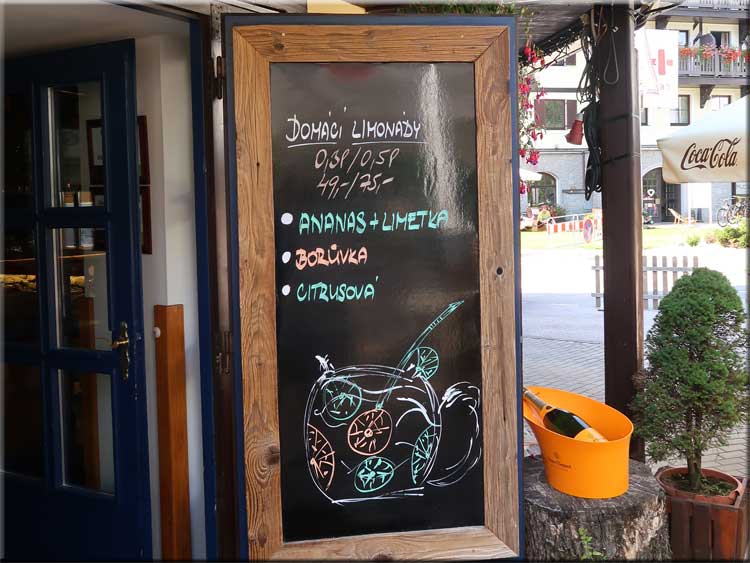 DOMÁCÍ LIMONÁDY
0,3l/0,5l
49,-/75,-
• ANANAS + LIMETKA
• BORŮVKA
• CITRUSOVÁ
Coca-Cola